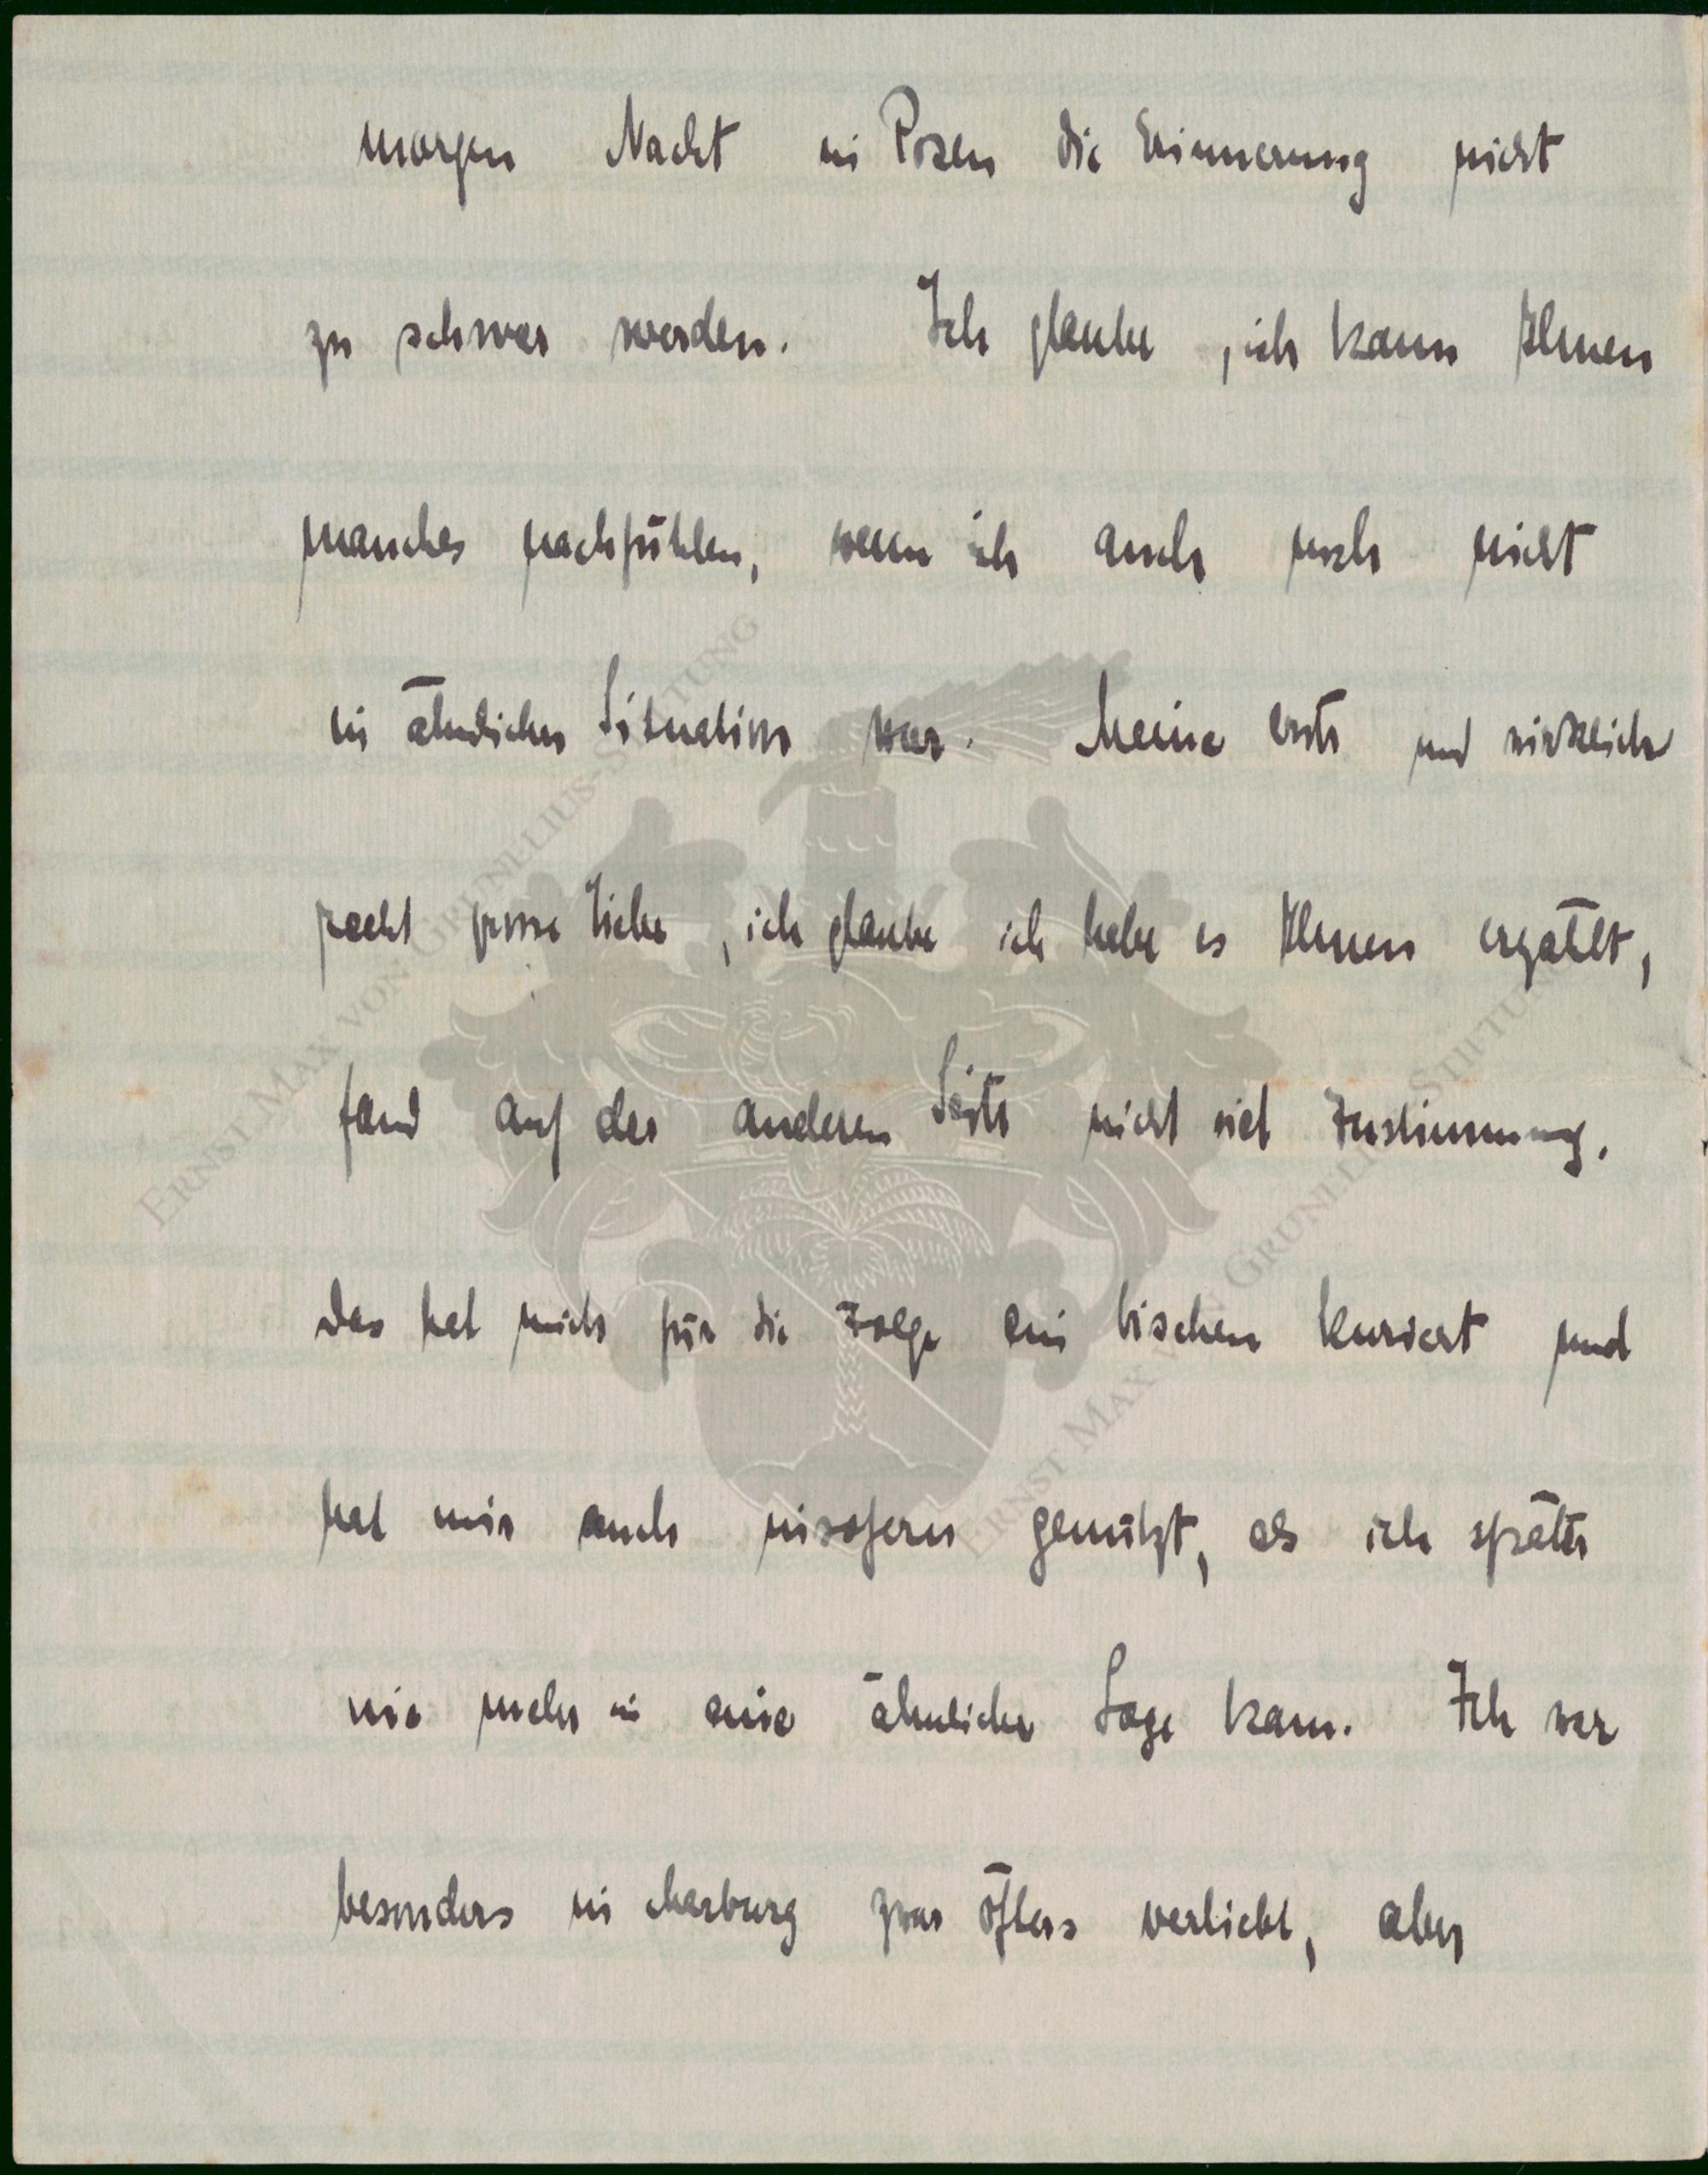 morgen Nacht in Posen die Erinnerung nicht
zu schwer werden. Ich glaube, ich kann Ihnen
manches nachfühlen, wenn ich auch noch nicht
in ähnlicher Situation war. Meine erste und wirklich
recht grosse Liebe, ich glaube ich habe es Ihnen erzählt,
fand auf der anderen Seite nicht viel Zustimmung.
Das hat mich für die Folge ein bischen kuriert und
hat mir auch insofern genützt, als ich später
nie mehr in eine ähnliche Lage kam. Ich war
besonders in Marburg zwar öfters verliebt, aber
ERNST MAX VON GRUNELIUS-STIFTUNG
ERNST MAX VON GRUNELIUS-STIFTUNG